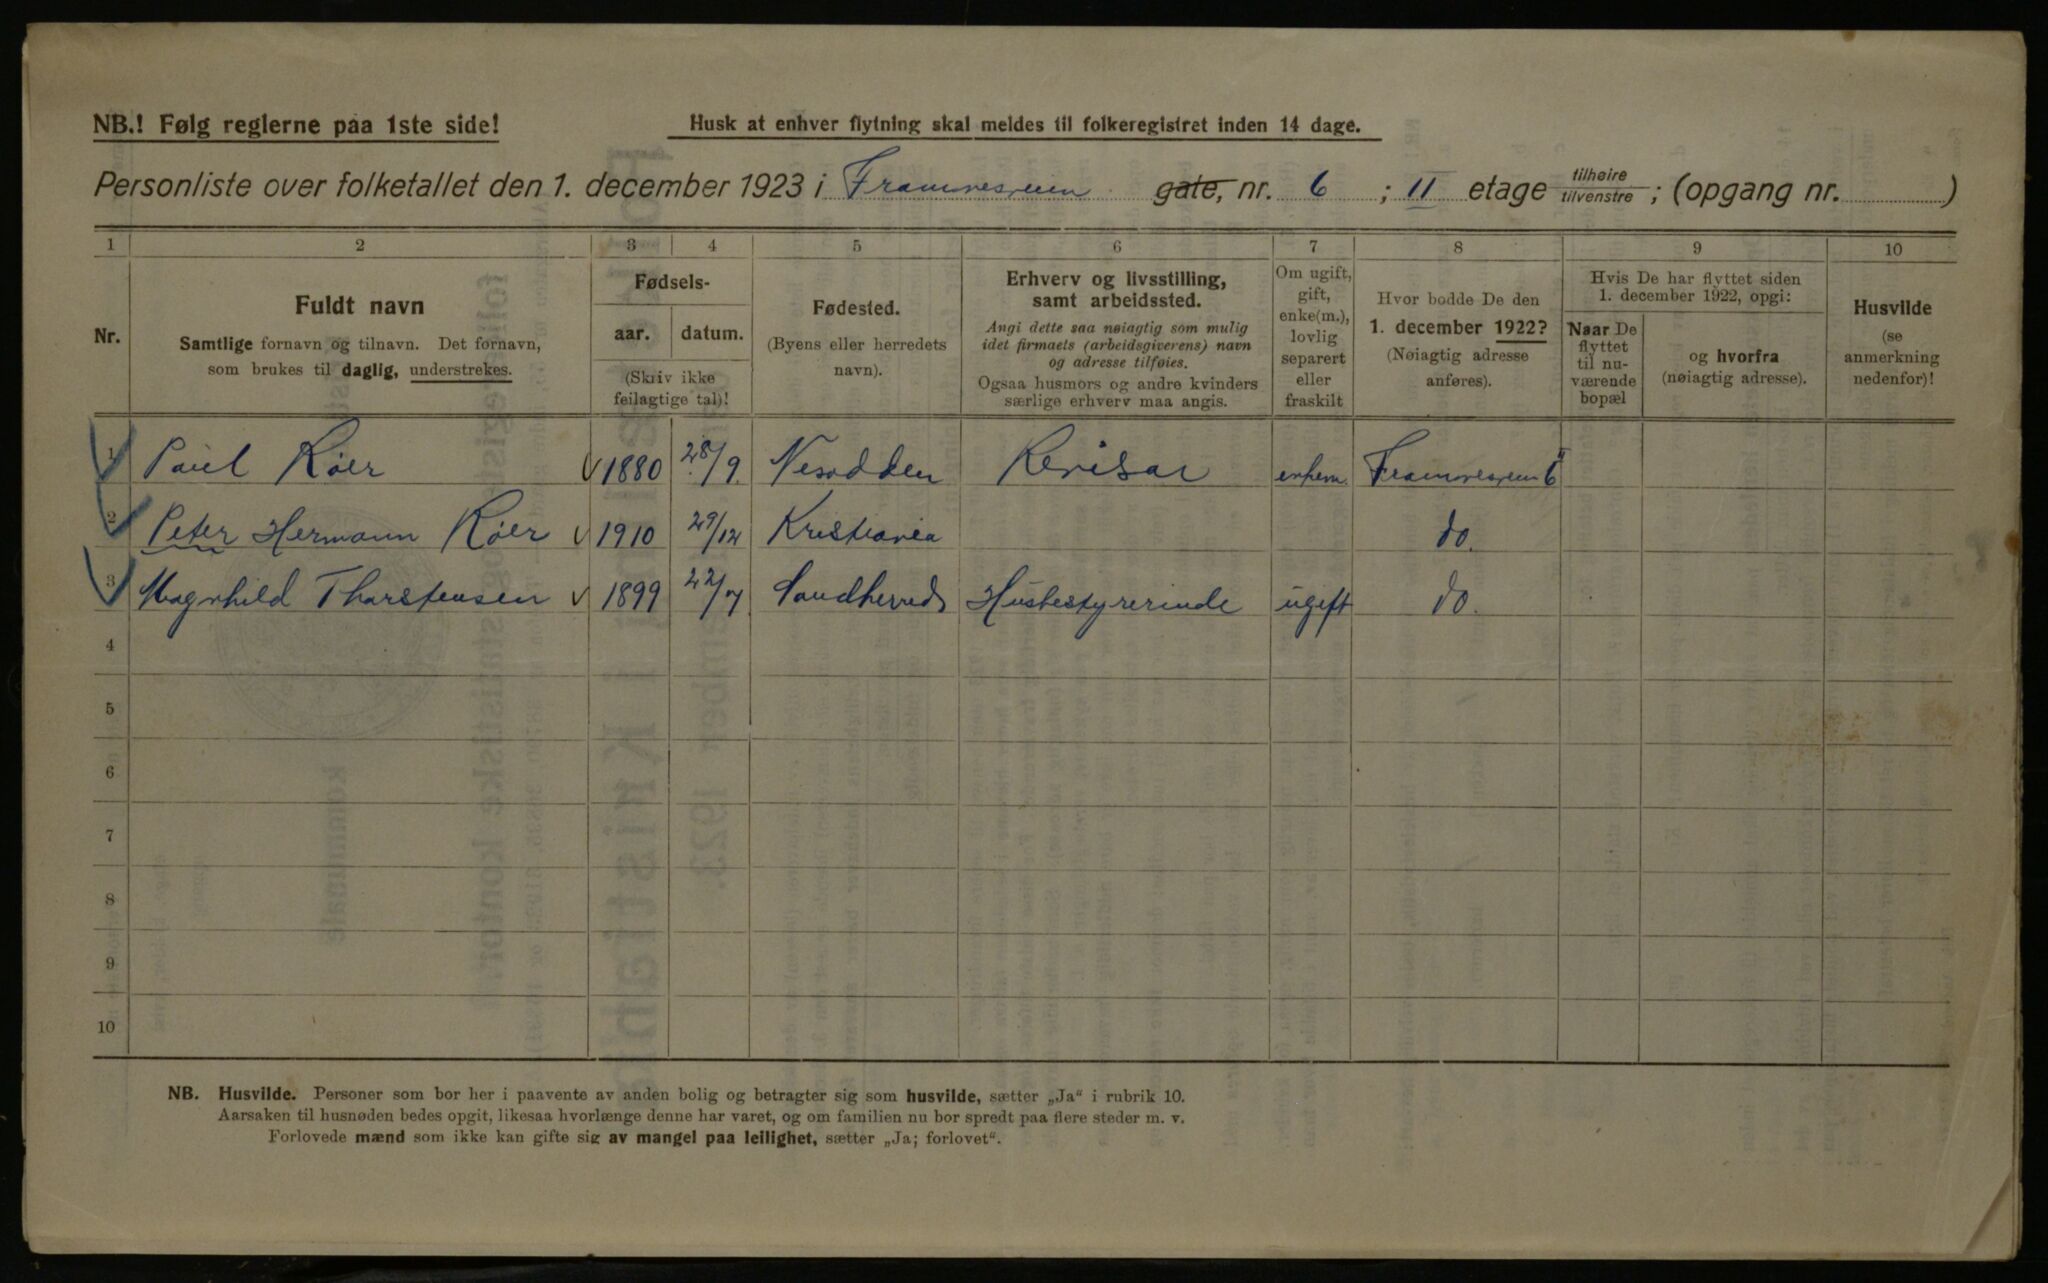 NB.! Følg reglerne paa 1ste side!
Husk at enhver flytning skal meldes til folkeregistret inden 14 dage.
Personliste over folketallet den 1. december 1923 i Framnesveien gate, nr. 6 ; II etage tilhøire tilvenstre ; (opgang nr. )
1 2 3 4 5 6 7 8 9 10
Nr.
Fuldt navn
Samtlige fornavn og tilnavn. Det fornavn,
som brukes til daglig, understrekes.
Fødsels-
aar. datum.
(Skriv ikke
feilagtige tal)!
Fødested.
(Byens eller herredets
navn).
Erhverv og livsstilling,
samt arbeidssted.
Angi dette saa nøiagtig som mulig
idet firmaets (arbeidsgiverens) navn
og adresse tilføies.
Ogsaa husmors og andre kvinders
særlige erhverv maa angis.
Om ugift,
gift,
enke(m.),
lovlig
separert
eller
fraskilt
Hvor bodde De den
1. december 1922?
(Nøiagtig adresse
anføres).
Hvis De har flyttet siden
1. december 1922, opgi:
Naar De
flyttet
til nu-
værende
bopæl
og hvorfra
(nøiagtig adresse).
Husvilde
(se
anmerkning
nedenfor)!
1 Paul Røer 1880 28/9. Nesodden Revisor enkem. Framnesveien 6 II
2 Peter Hermann Røer 1910 29/12 Kristiania do.
3 Magnhild Thorstensen 1899 22/ Sandherred Husbestyrerinde ugift do.
4
5
6
7
8
9
10
NB. Husvilde. Personer som bor her i paavente av anden bolig og betragter sig som husvilde, sætter „Ja“ i rubrik 10.
Aarsaken til husnøden bedes opgit, likesaa hvorlænge denne har varet, og om familien nu bor spredt paa flere steder m. v.
Forlovede mænd som ikke kan gifte sig av mangel paa leilighet, sætter „Ja; forlovet“.